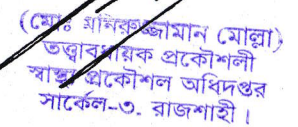 (মোঃ মনিরুজ্জামান মোল্লা)
তত্ত্বাবধায়ক প্রকৌশলী
স্বাস্থ্য প্রকৌশল অধিদপ্তর
সার্কেল-৩, রাজশাহী।